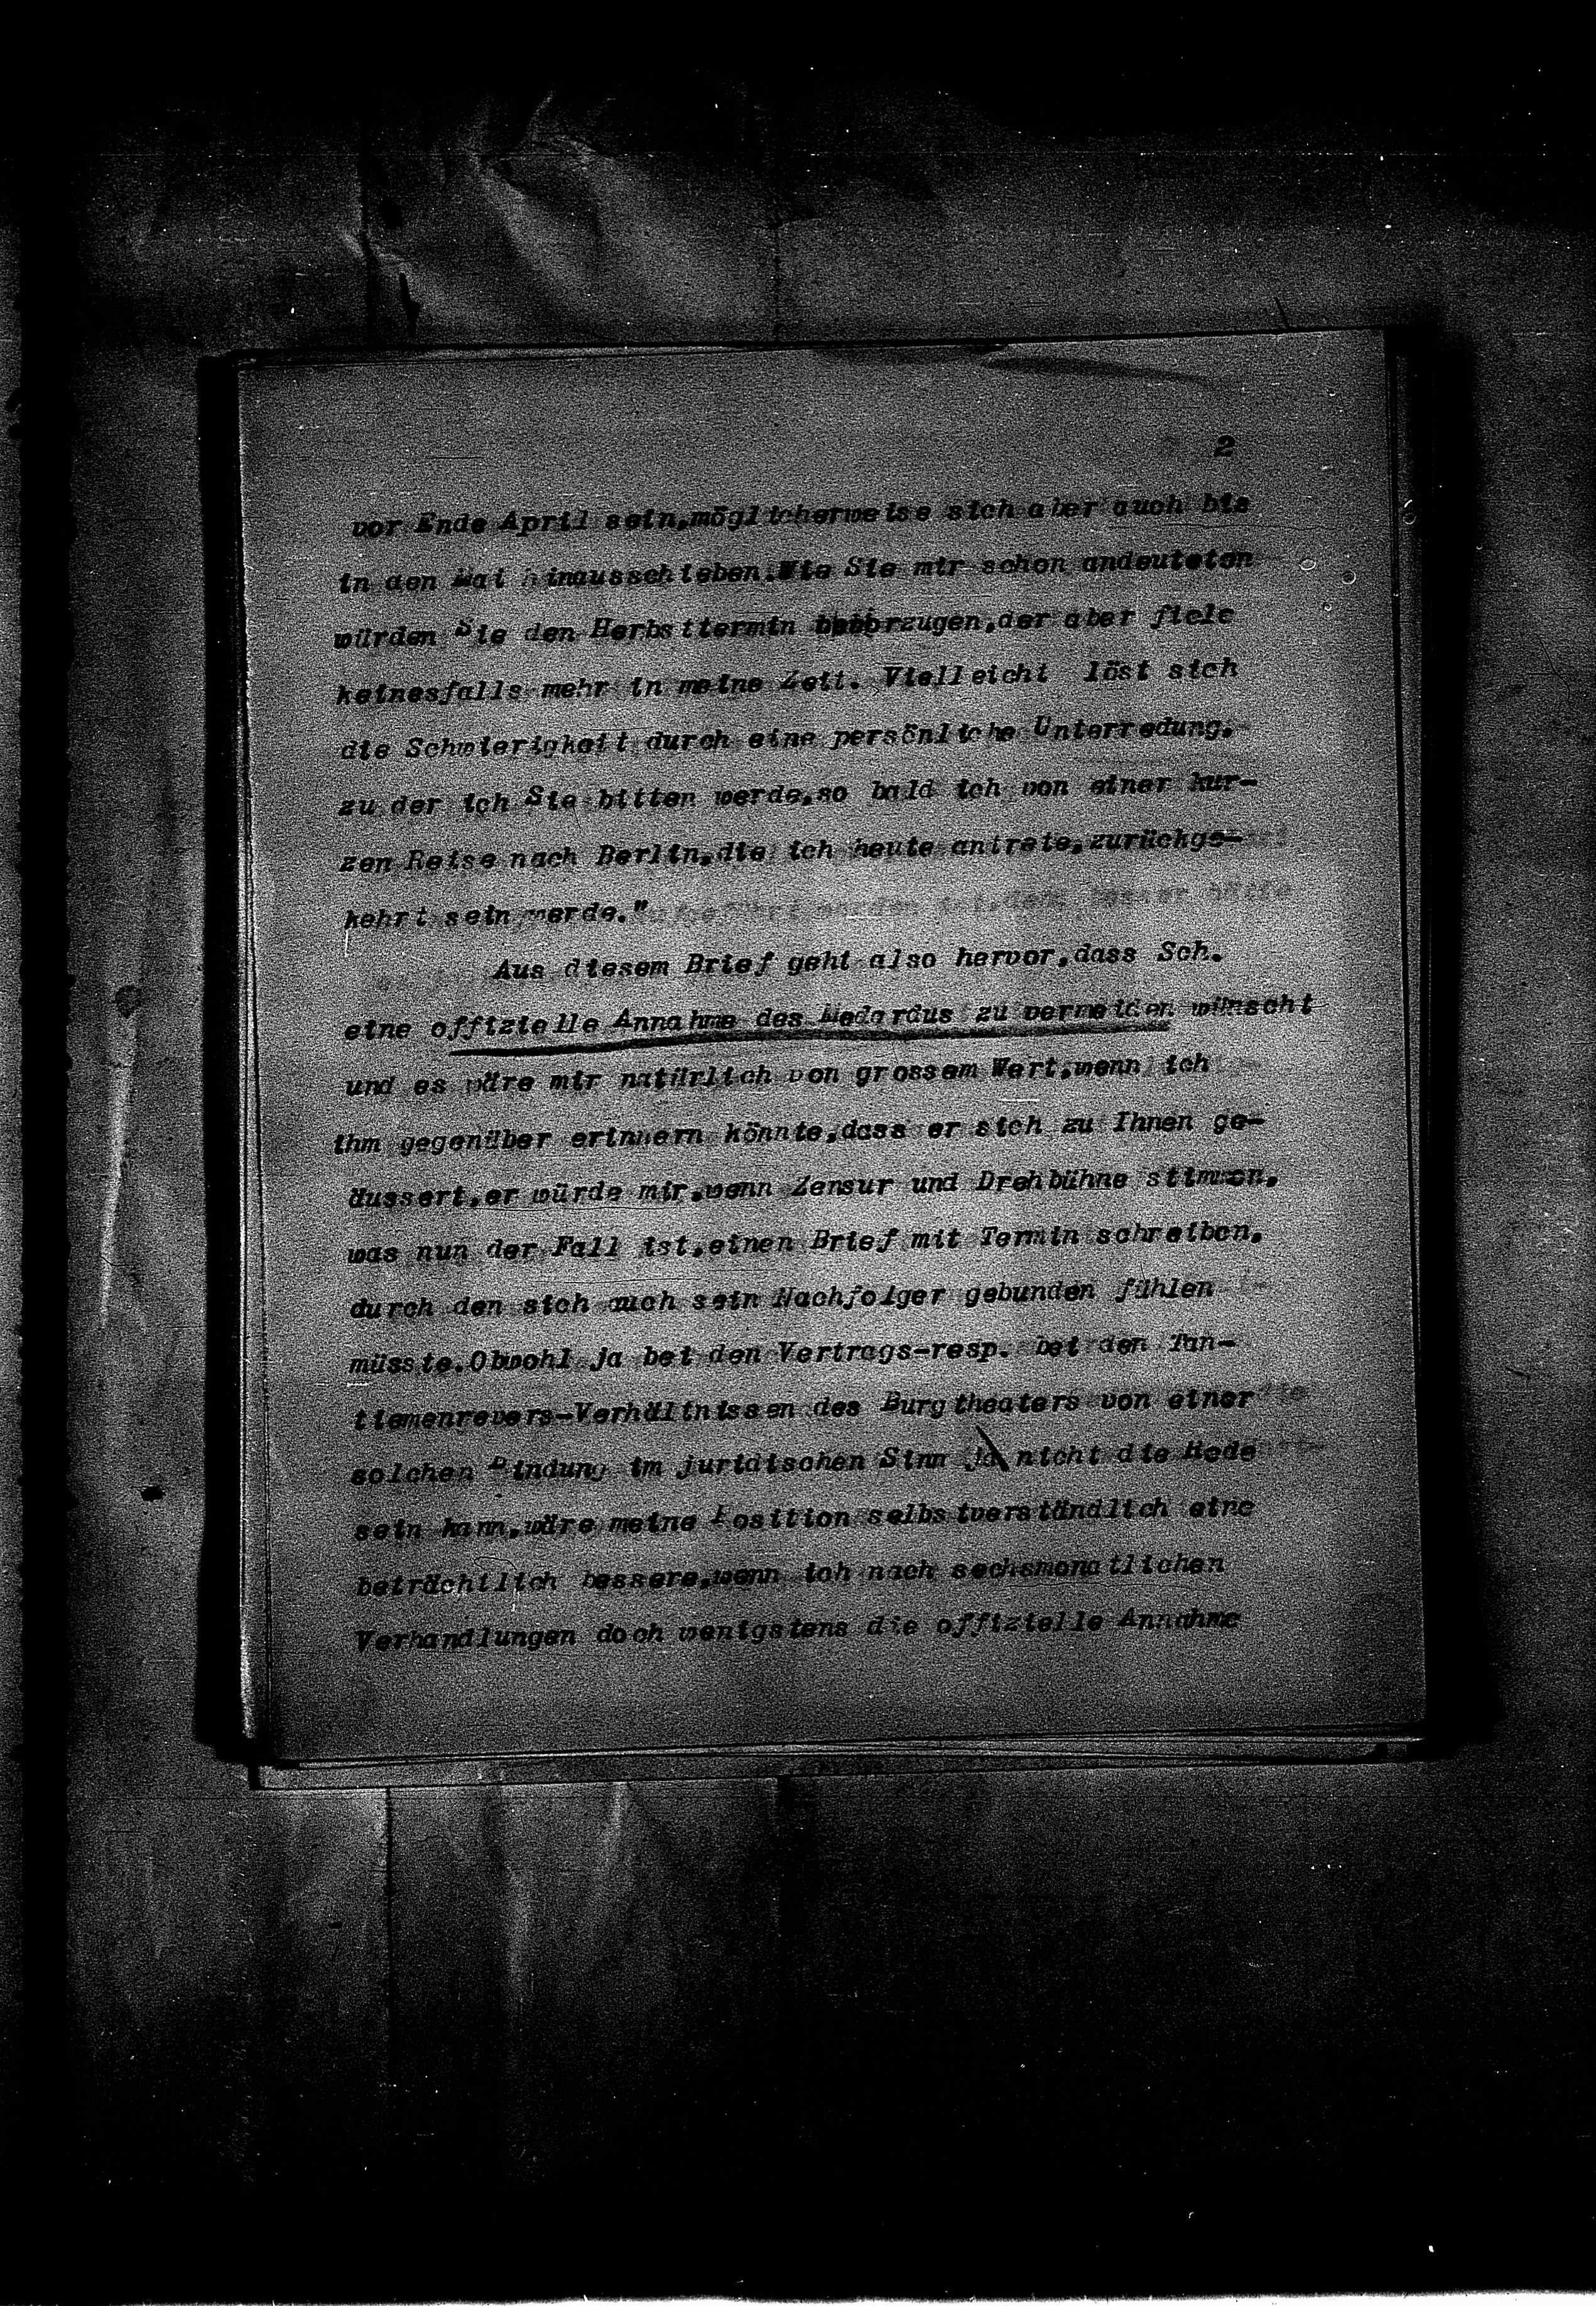 2
vor Ende April sein,möglicherweise sich aber auch bis
in den Mai hinausschieben.Wie Sie mir schon andeuteten
würden Sie den Herbsttermin bevorzugen,der aber fiele
keinesfalls mehr in meine Zeit. Vielleicht löst sich
die Schwierigkeit durch eine persönliche Unterredung,
zu der ich Sie bitten werde,so bald ich von einer kur-
zen Reise nach Berlin,die ich heute antrete,zurückge-
kehrt sein werde."
Aus diesem Brief geht also hervor,dass Sch.
eine offizielle Annahme des Medardus zu vermeiden wünscht
und es wäre mir natürlich von grossem Wert,wenn ich
ihm gegenüber erinnern könnte,dass er sich zu Ihnen ge-
äussert,er würde mir,wenn Zensur und Drehbühne stimmen,
was nun der Fall ist,einen Brief mit Termin schreiben,
durch den sich auch sein Nachfolger gebunden fühlen
müsste.Obwohl ja bei den Vertrags-resp. bei den Tan-
tiemenrevers-Verhältnissen des Burgtheaters von einer
solchen Bindung im juridischen Sinn ja nicht die Rede
sein kann,wäre meine Position selbstverständlich eine
beträchtlich bessere,wenn ich nach sechsmonatlichen
Verhandlungen doch wenigstens die offizielle Annahme